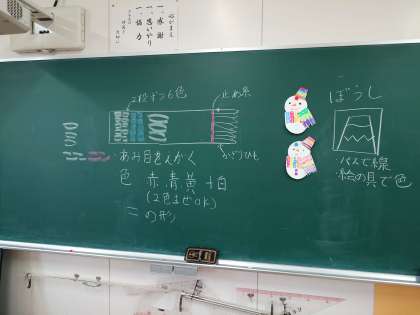 心がまえ
一、感謝
一、思いやり
一、協力
2段ずつ6色
止め糸
ぼうし
かざりひも
・あみ目をえがく
色 赤、青、黄 + 白
(2色まぜOK)
の形
・パスで線
・絵の具で色